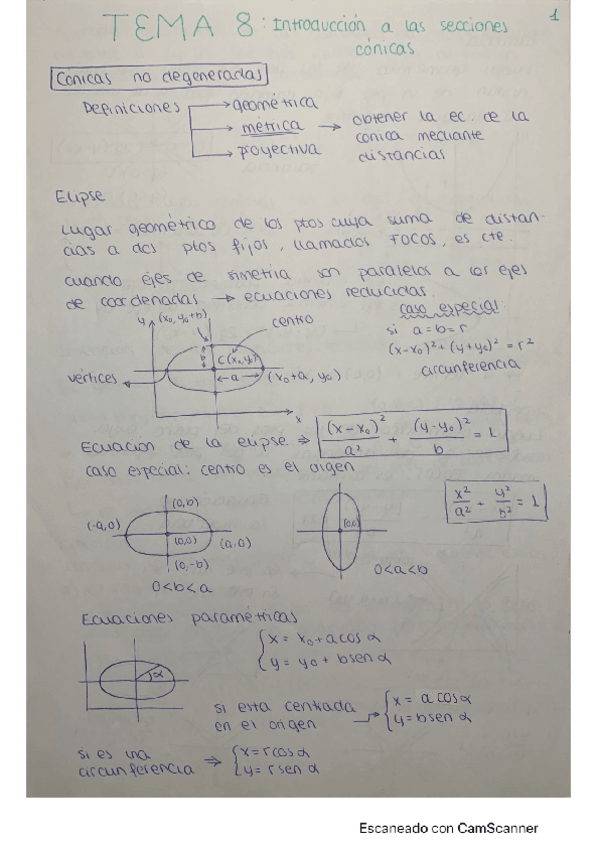 1
TEMA 8: Introducción a las secciones
cónicas
Cónicas no degeneradas
Definiciones → geométrica
→ métrica → obtener la ec. de la
cónica mediante
distancias
→ proyectiva
Elipse
Lugar geométrico de los ptos cuya suma de distan-
cias a dos ptos fijos, llamados FOCOS, es cte.
cuando ejes de simetría son paralelos a los ejes
de coordenadas → ecuaciones reducidas
caso especial:
si a=b=r
(x-x₀)²+(y+y₀)²=r²
circunferencia
y (x₀,y₀+b)
centro
b C(x₀,y₀)
vértices
a (x₀+a, y₀)
x
Ecuacion de la elipse ⇒ (x-x₀)²/a² + (y-y₀)²/b = 1
caso especial: centro es el origen
x²/a² + y²/b² = 1
(0,b)
(-a,0) (0,0) (a,0)
(0,-b)
0<b<a
(0,0)
0<a<b
Ecuaciones paramétricas
{x = x₀+a cos α
{y = y₀+ b sen α
α
si esta centrada
en el origen → {x = a cos α
{y = b sen α
si es una
circunferencia ⇒ {x = r cos α
{y = r sen α
Escaneado con CamScanner